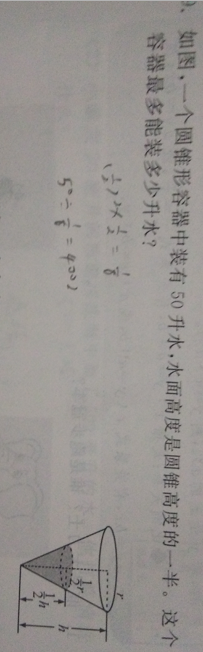 9、如图,一个圆锥形容器中装有50升水,水面高度是圆锥高度的一半。这个
容器最多能装多少升水?
(1/2)²×1/2=1/8
50÷1/8=400)
r
1/2r
1/2h
h